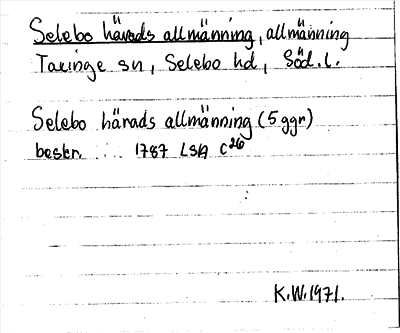 Selebo härads allmänning, allmänning
Taxinge sn, Selebo hd, Söd. l.
Selebo härads allmänning (5 ggr)
beskr. 1787 LSA C26
K.W. 1971.